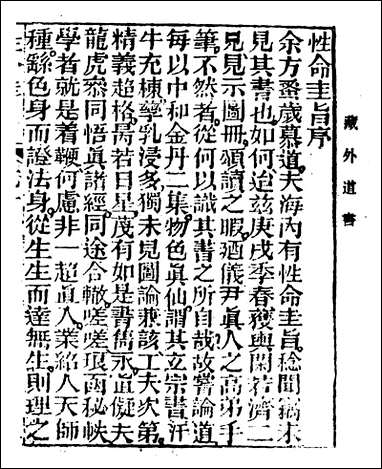 藏外道書
性命圭旨序
余方蚤歲慕道夫海內有性命圭旨稔聞猶未
見其書也如何迨茲庚戌季春獲與閑若濟二
兄見示圖冊頌讀之暇迺儀尹眞人之高弟手
筆不然者從何以識其書之所自哉故嘗論道
每以中和金丹二集物色眞仙謂其立宗書汗
牛充棟孳乳浸多獨未見圖論兼該工夫次第
精義超格昺若日星茂有如是書雋永直儗夫
龍虎叅同悟眞諸經同途合轍嗟嗟琅函秘帙
學者就是着鞭何慮非一超眞人業紹人天師
種繇色身而證法身從生生而達無生則理之